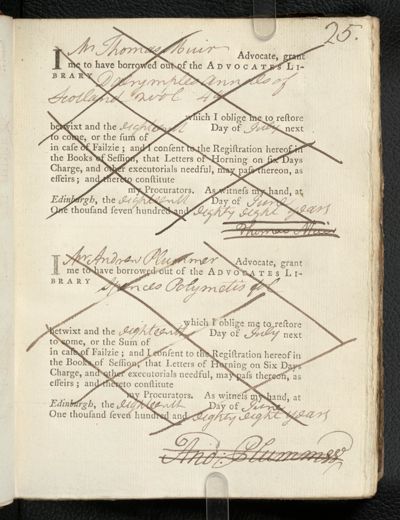 25.
I Mr Thomas Muir Advocate, grant
me to have borrowed out of the ADVOCATES LI-
BRARY Dalrymples annals of
Scotland 2 vol 4to
which I oblige me to restore
betwixt and the eighteenth Day of July next
to come, or the sum of
in case of Failzie; and I consent to the Registration hereof in
the Books of Session, that Letters of Horning on six Days
Charge, and other executorials needful, may pass thereon, as
effeirs; and thereto constitute
my Procurators. As witness my hand, at
Edinburgh, the eighteenth Day of June
One thousand seven hundred and eighty eight years
Thomas Muir
I Mr Andrew Plummer Advocate, grant
me to have borrowed out of the ADVOCATES LI-
BRARY Spences Polymetis
which I oblige me to restore
betwixt and the eighteenth Day of July next
to come, or the Sum of
in case of Failzie; and I consent to the Registration hereof in
the Books of Session, that Letters of Horning on Six Days
Charge, and other executorials needful, may pass thereon, as
effeirs; and thereto constitute
my Procurators. As witness my hand, at
Edinburgh, the eighteenth Day of June
One thousand seven hundred and eighty eight years
And: Plummer